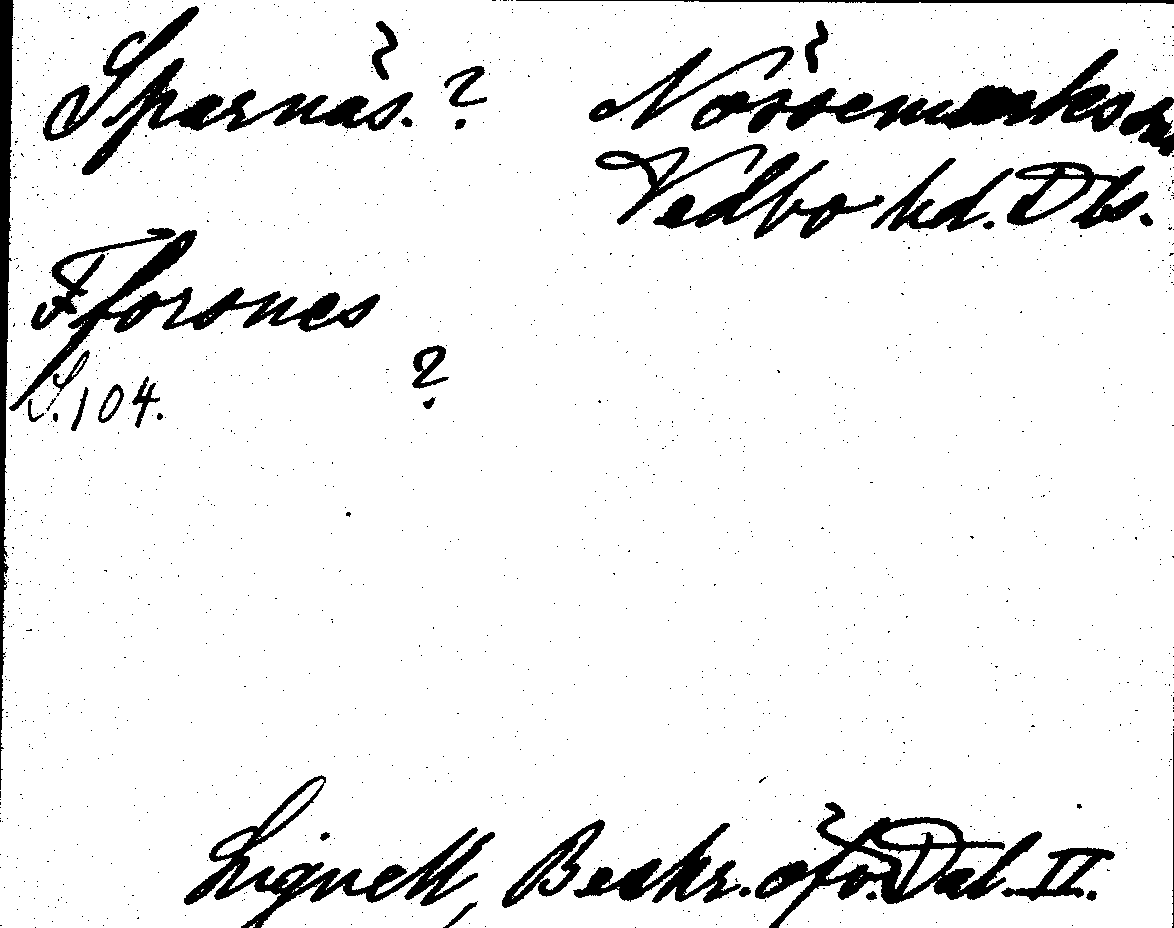 Sparnäs.? Nössemarks sn
Vedbo hd. Dls.
Fforsnes
?
S. 104.
Lignell, Beskr. öfv. Dal. II.